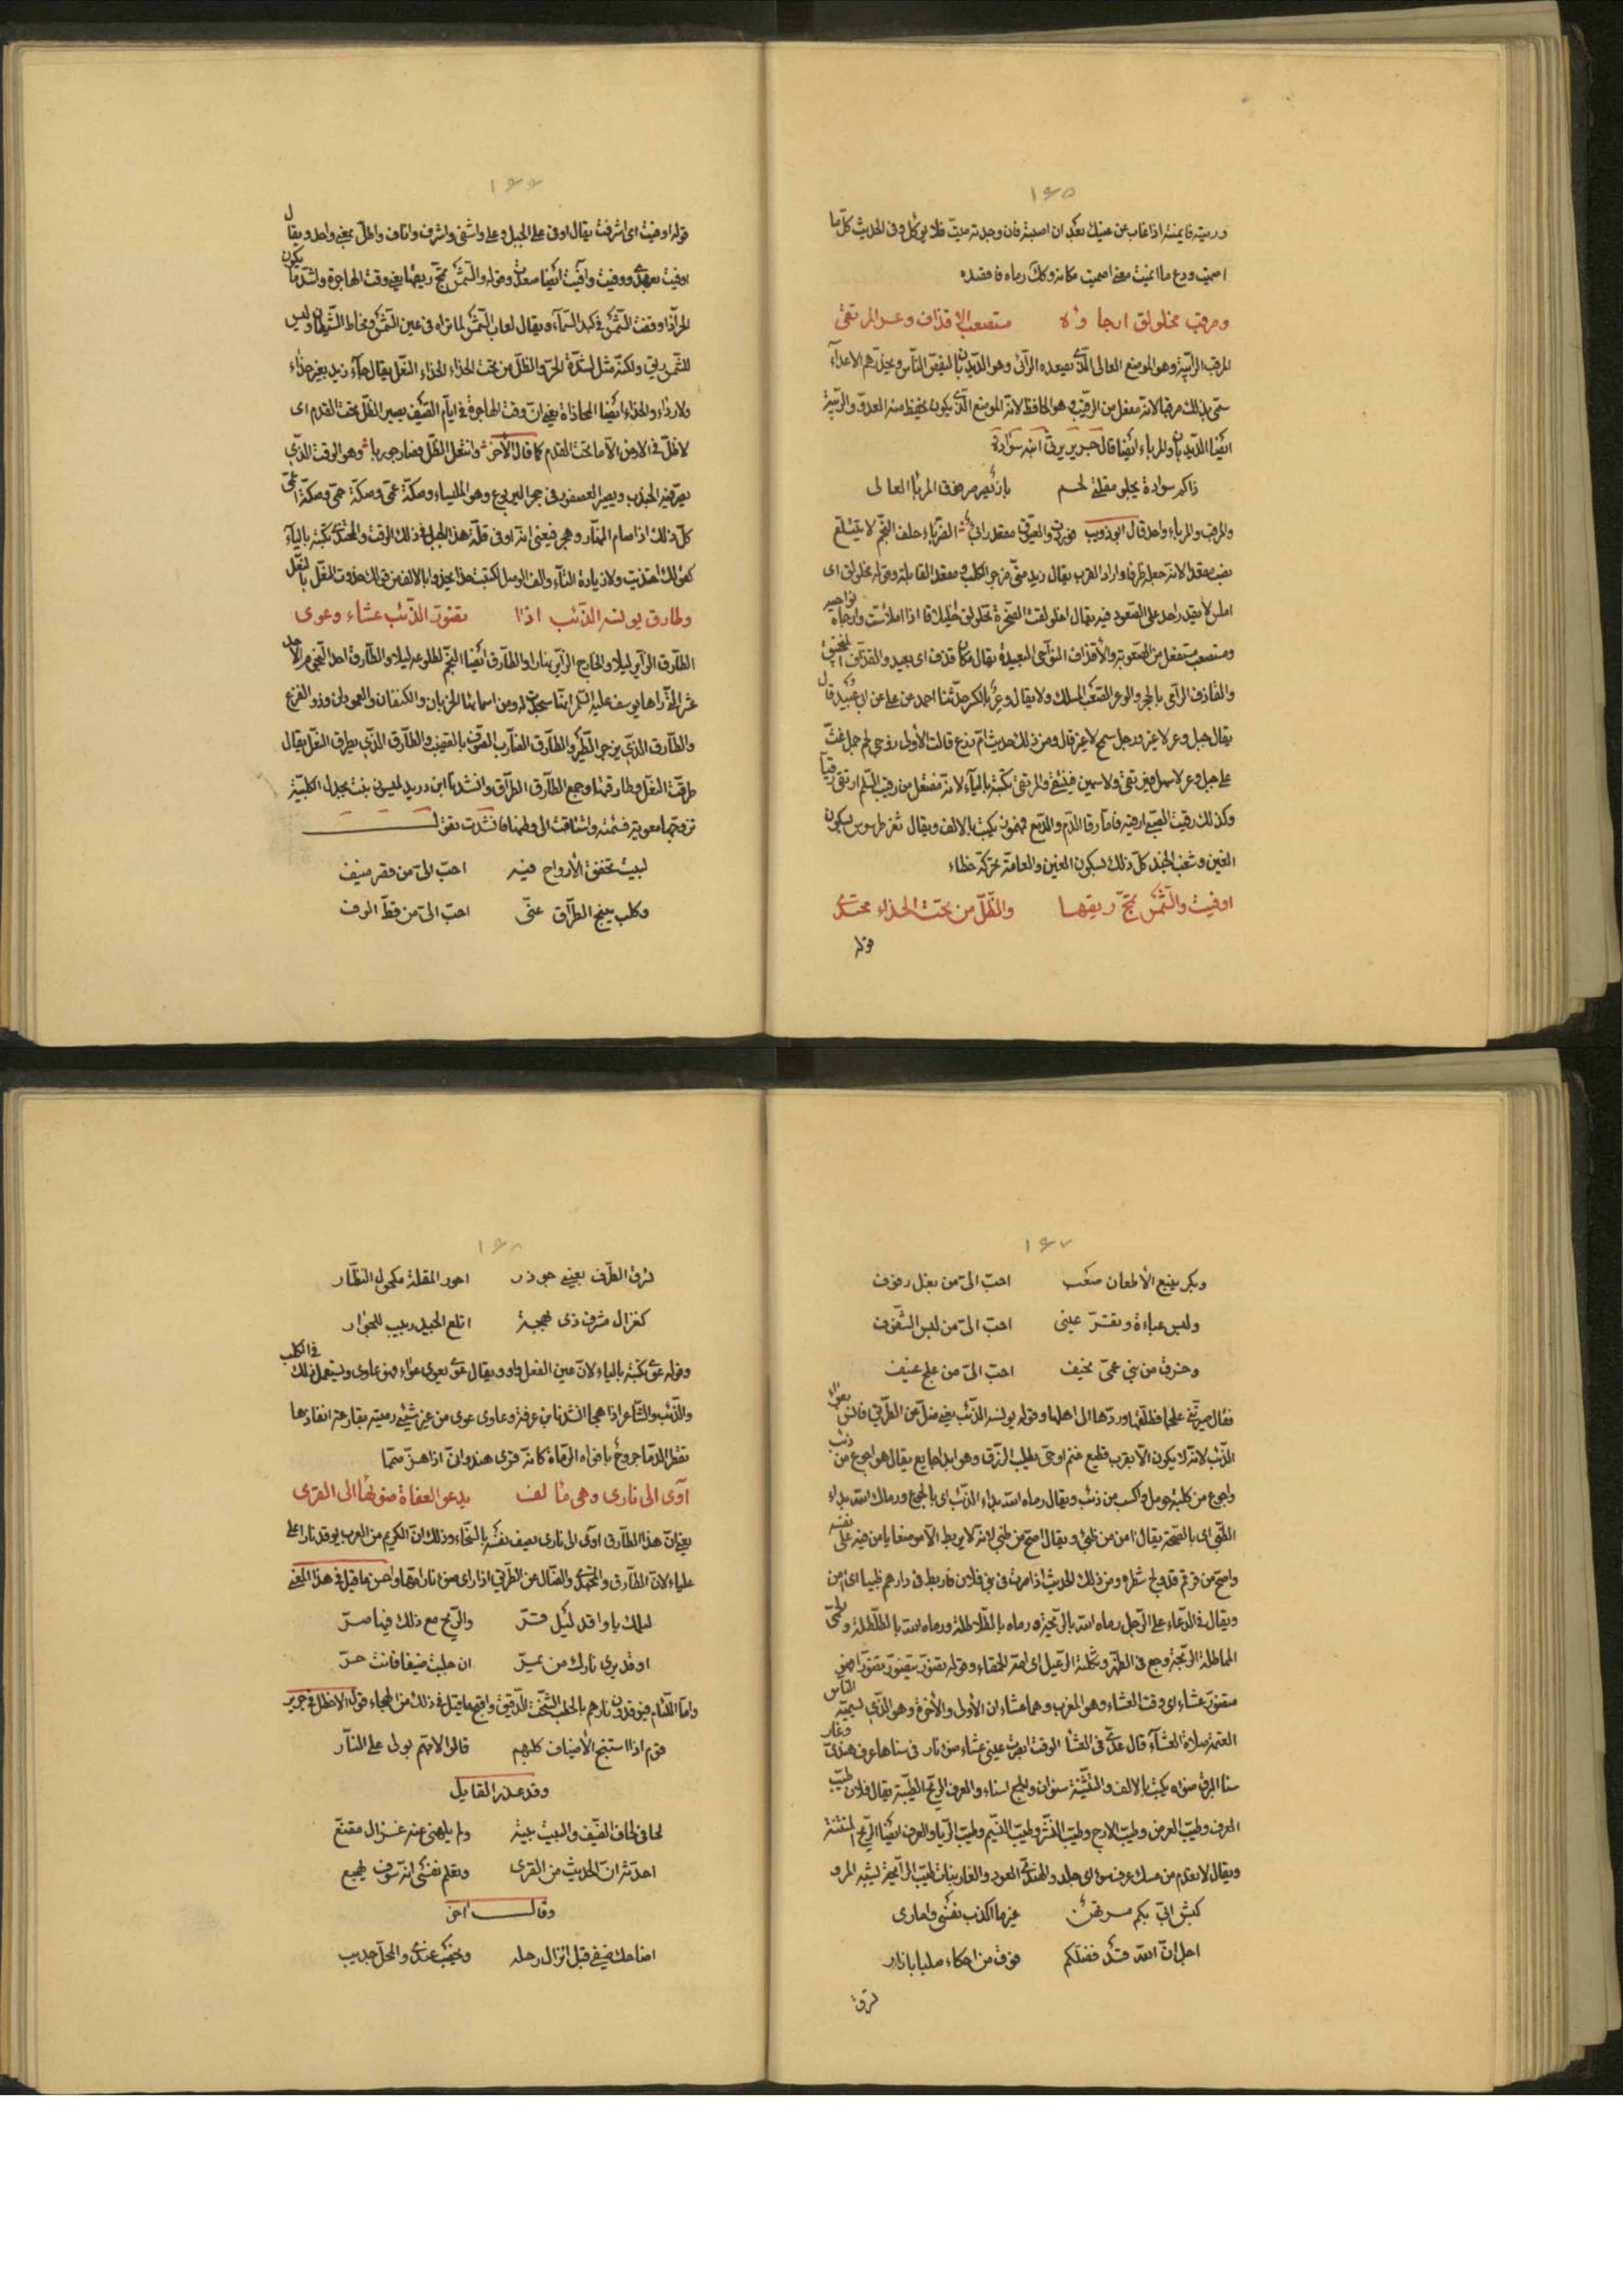 ١٤٥
ورميته فانميته اذا غاب عن عينك بعد ان اصبته فان وجدته ميت فلا يوكل وفى الحديث كل ما
اصميت ودع ما انميت معنى اصميت مكانه وكذلك رماه فاقصده
ومرقب مخلولق ارجاؤه مستصعب الاقذاف وعر المرتقى
المرقب الرابية وهو الموضع العالى الذى يصعده الرائى وهو الديدبان لينفض الناس ويحذرهم الاعداء
سمى بذلك مرقبا لانه مفعل من الرقيب وهو الحافظ لانه الموضع الذى يكون يحفظ منه العدو والربية
ايضا الديدبان والمرباء ايضا قال جرير يرثى ابنه سوادة
ذاكم سوادة يجلو مقلتى لحم باز يصرصر فوق المربا العالى
والمرقب والمرباء واحد قال ابو ذويب فوردن والعيوق مقعد رابئ الضرباء خلف النجم لا يتتلع
نصب مقعد لانه جعله ظرفا واراد القرب يقال زيد منى مزجر الكلب ومقعد القابلة وقوله مخلولق اى
املس لا يقدر احد على الصعود فيه يقال اخلولقت الصخرة تخلولق اخليلاقا اذا املاست وارجاه نواحيه
ومستصعب مستفعل من الصعوبة والأقذاف النواحى البعيدة يقال مكان قذف اى بعيد والقذاف المنجنيق
والقاذف الرامى بالحجر والوعر الصعب المسلك ولا يقال وعر بالكسر حدثنا احمد عن على عن ابى عبيد قال
يقال جبل وعر لا غير ورجل سمح لا غير قال ومن ذلك حديث ام زرع قالت الأولى زوجى لحم جمل غث
على جبل وعر لا سهل فيرتقى ولا سمين فينتقى والمرتقى تكتبه بالياء لانه مفتعل من رقيت السلم ارتقى رقيا
وكذلك رقيت الصبى ارقيه فاما رقا الدم والدمع فمهموز يكتب بالالف ويقال ثغر طرسوس بسكون
الغين وشغب الجند كل ذلك بسكون الغين والعامة تحركه خطاء
اوفيت والشمس تمج ريقها والظل من تحت الحذاء محتذى
قوله
١٤٦
قوله اوفيت اى اشرفت يقال اوفى على الجبل وعلى واشفى واشرف واناف واطل بمعنى واحد ويقال
اوفيت بعهدى ووفيت وافيت ايضا وقوله والشمس تمج ريقها يعنى وقت الهاجرة واشد ما يكون
الحر اذا وقفت الشمس فى كبد السماء ويقال لعاب الشمس لما تراه فى عين الشمس ومخاط الشيطان وليس
للشمس ريق ولكنه مثل لشدة الحر والظل من تحت الحذاء الحذاء النعل يقال جاء زيد بغير حذاء
ولا رداء والحذاء ايضا المحاذاة يعنى ان وقت الهاجرة فى ايام الصيف يصير الظل تحت القدم اى
لا ظل فى الارض الا ما تحت القدم كما قال الأخر وانتعل الظل فصار جوربا وهو الوقت الذى
يصر فيه الجندب ويصير العصفور فى جحر اليربوع وهو المليساء وصكة عمى وصكة حمى وصكة اعمى
كل ذلك اذا صام النهار وهجر فيعنى انه اوفى قلة هذا الجبل فى ذلك الوقت والمحتذى تكتبه بالياء
كقولك احتذيت ولا زيادة التاء والف الوصل لكتبت حذا يحذوا بالالف من قولك حذوت النعل بالنعل
وطارق يونسه الذئب اذا تضور الذئب عشاء وعوى
الطارق الزاير ليلا والخارج الزاير نهارا والطارق ايضا النجم لطلوعه ليلا والطارق احد النجوم الأحد
عشر التى راها يوسف عليه السلام انها سجدت له ومن اسمائها الخربان والكتفان والعمودان وذو الفرع
والطارق الذى يزجر الطير والطارق الضارب الصوف بالقضيب والطارق الذى يطرق النعل يقال
طرقت النعل وطارقتها وجمع الطارق الطراق وانشدنا ابن دريد لميسون بنت بجدل الكلبية
تزوجها معوية فسئمته واشتاقت الى وطنها فانشدت تقول
لبيت تخفق الأرواح فيه احب الى من قصر منيف
وكلب ينبح الطراق عنى احب الى من قط الوف
١٤٧
وبكر يتبع الأظعان صعب احب الى من بغل زفوف
ولبس عباءة وتقر عينى احب الى من لبس الشفوف
وخرق من بنى عمى نحيف احب الى من علج عنيف
فقال صيرتنى علجا فطلقها وردها الى اهلها وقوله يونسه الذئب يعنى ضل عن الطريق فانس بعواء
الذئب لانه لا يكون الا بقرب قطيع غنم او حى يطلب الرزق وهو ابدا جايع يقال هو اجوع من ذئب
واجوع من كلبة حومل واكسب من ذئب ويقال رماه الله بداء الذئب اى بالجوع ورماك الله بداء
الظبى اى بالصحة يقال امن من ظبى ويقال اصح من ظبى لانه لا يربط الا موضعا يامن فيه على نفسه
ويقال فى الدعاء على الرجل رماه الله بالزنجبة ورماه بالطلاطلة ورماه الله بالطلطلة والحمى
متضور عشاء اى وقت العشاء وهو المغرب وهما عشاءان الأولى والأخرة وهو الذى يسميه الناس
العتمة صلاة العشاء قال عدى فى العشا الوقت ابصرت عينى عشاء ضوء نار فى سناها عرف هندى وغار
سنا البرق ضوءه يكتب بالالف والتثنية سنوان والجمع اسناء والعرف الريح الطيبة يقال فلان طيب
العرف وطيب العرض وطيب الارج وطيب النشر وطيب النسيم وطيب الريا والعرف ايضا الريح المنتنة
ويقال لا يعدم من مسك عرف سوء اى جلد والهندى العود والغار نبات طيب الرائحة يشبه المرو
غير ما اكذب نفسى وامارى
اجل ان الله قد فضلكم فوق من احكاء صلبا بازار
١٤٨
لزق الطرف بعينى جوذر احور المقلة مكحول النظار
كغزال مشرف ذى بهجة اتلع الجيد ربيب للجوار
وقوله عوى تكتبه بالياء لان عين الفعل واو ويقال عوى يعوى عواء فهو عاوى ويستعمل ذلك فى الكلب
والذئب والشاعر اذا هجا انشدنا ابن عرفة وعاوى عوى من غير شئ رميته بقارعة انفاذها
تقطر الدما خروج بافواه الرواة كانه قرى هندوانى اذا هز صمما
آوى الى نارى وهى مألف يدعو العفاة ضوءها الى القرى
يعنى ان هذا الطارق اوى الى نارى يصف نفسه بالسخاء وذلك ان الكريم من العرب يوقد نارا على
علياء لان الطارق والمجتدى والضال عن الطريق اذا راى ضوء نار امها واحسن ما قيل فى هذا المعنى
ليلك يا واقد ليل قر والريح مع ذلك فيها صر
اوقد يرى نارك من يمر ان جلبت ضيفا فانت حر
واما اللئام فيوقدون نارهم بالحطب الشخت الدقيق واقبح ما قيل فى ذلك من الهجاء قول الاخطل فى جرير
قوم اذا استنبح الأضياف كلبهم قالوا لامهم بولى على النار
وقد عذر القايل
لحافى لحاف الضيف والبيت بيته ولم يلهنى عنه غزال مقنع
احدثه ان الحديث من القرى وتعلم نفسى انه سوف يهجع
وقال اخر
اضاحك ضيفى قبل انزال رحله ويخصب عندى والمحل جديب